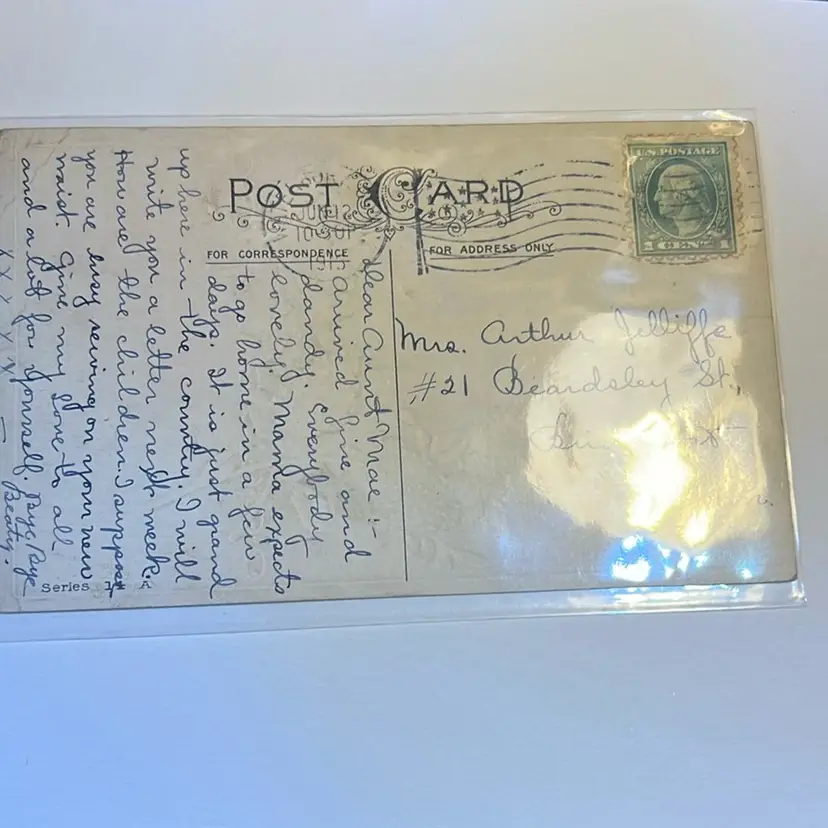 POST CARD
FOR CORRESPONDENCE
FOR ADDRESS ONLY
U.S. POSTAGE
Dear Aunt Mae :-
Arrived fine and
dandy. Everybody
lovely. Mama expects
to go home in a few
days. It is just grand
up here in the country. I will
write you a letter next week.
How are the children. I suppose
you are busy sewing on your new
waist. Give my love to all
and a lot for yourself. Bye, Bye
Beaty.
X X X X X
Mrs. Arthur Jelliffe
#21 Beardsley St.,
Series